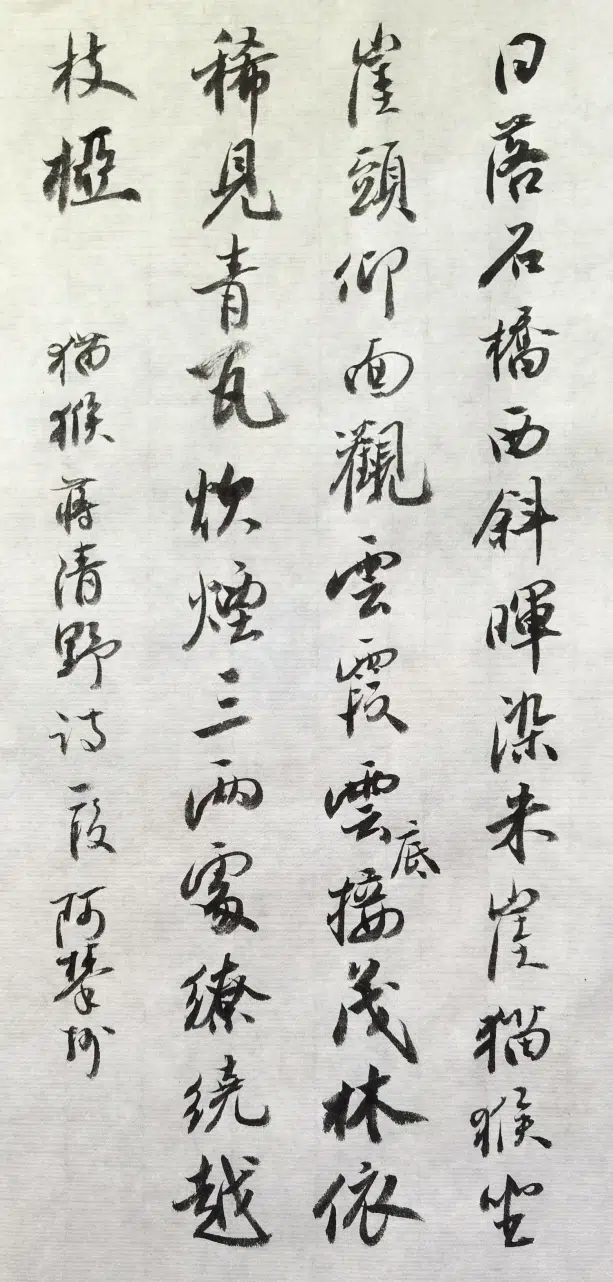 日落石橋西斜暉染朱崖猫猴坐
崖頭仰面觀雲霞雲底接茂林依
稀見青瓦炊煙三兩處繚繞越
枝椏
猫猴蔣清野詩一段阿